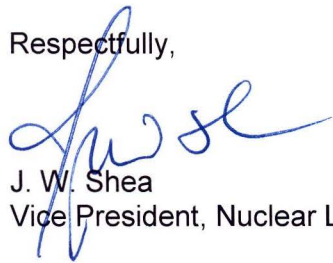 Respectfully,
J. W. Shea
Vice President, Nuclear L